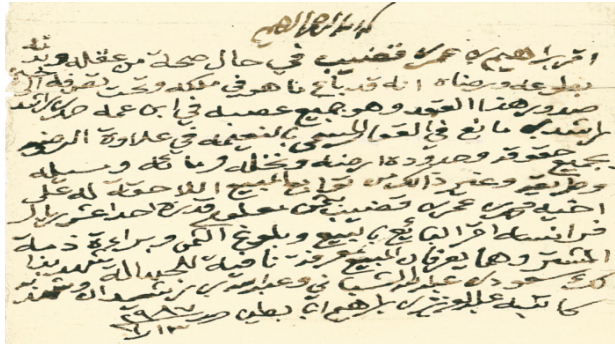 بسم الله الرحمن الرحيم
اقر ابراهيم بن عمر بن قضيب في حال صحة من عقله وبدنه
بطوعه ورضاه انه قد باع ما هو في ملكه وتحت تصرفه الى
صدور هذا العقد وهو جميع عصبه في ابن عمه
بن راشد مانع في العقار المسمى بالنعيمه في علاوة
بجميع حقوقه وحدوده ارضه ونخله وما ئه وسبله
وطريقه وغير ذالك من توابع المبيع اللاحقة له على
اخيه بن عمر بن قضيب بثمن معلوم قدره احد عشر ريال
فرانسه اقر البائع بالبيع وبلوغ الثمن وبراءة ذمة
المشتري وهما يعرفان المبيع معرفة نافية للجهالة شهد بذا
لك سعود بن عبدالله وعبدالله بن رشيدان وشهد به
كاتبه عبدالعزيز بن ابراهيم